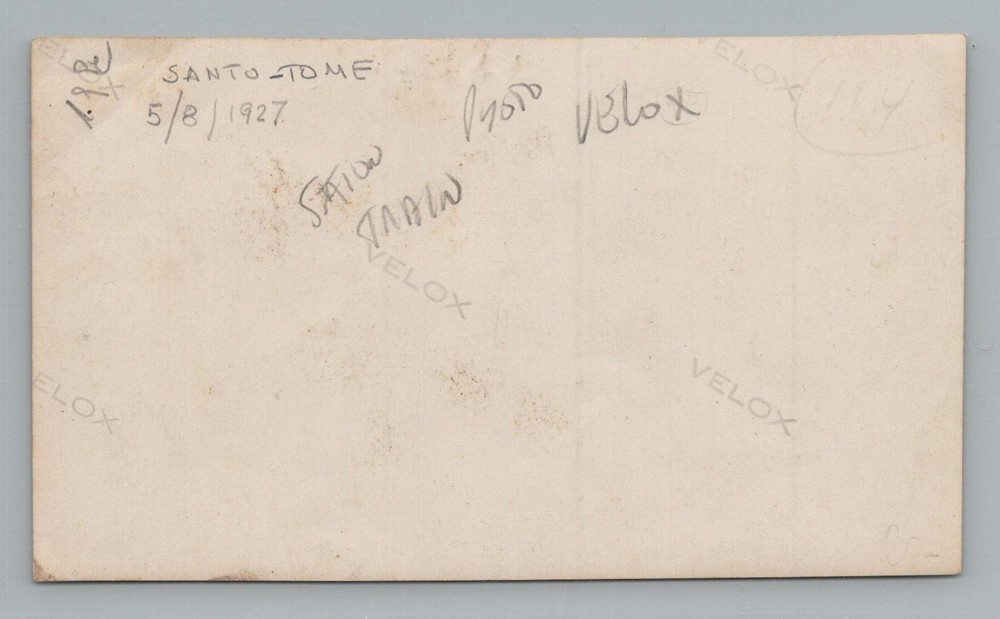 SANTO-TOME
5/8/1927
PHOTO VELOX
SATION
TRAIN
VELOX
VELOX
VELOX
VELOX
VELOX